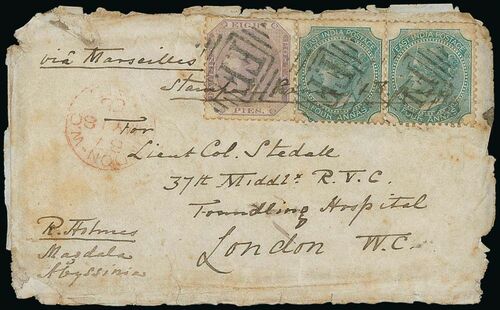 EIGHT
PIES.
EAST INDIA POSTAGE
FOUR ANNAS
EAST INDIA POSTAGE
FOUR ANNAS
FF
via Marseilles
Stamp
For
Lieut Col. Stedall
37th Middlx R.V.C.
Foundling Hospital
London W.C.
R. Holmes
Magdala
Abyssinia